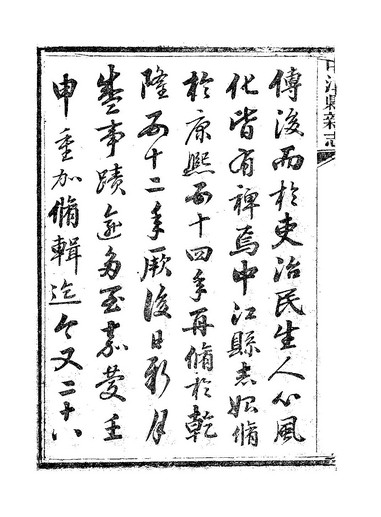 中江縣新志
傳後而於吏治民生人心風
化皆有裨焉中江縣志始脩
於康熙五十四年再脩於乾
隆五十二年厥後日新月
盛事蹟多至嘉慶壬
申重加脩輯迄今又二十八